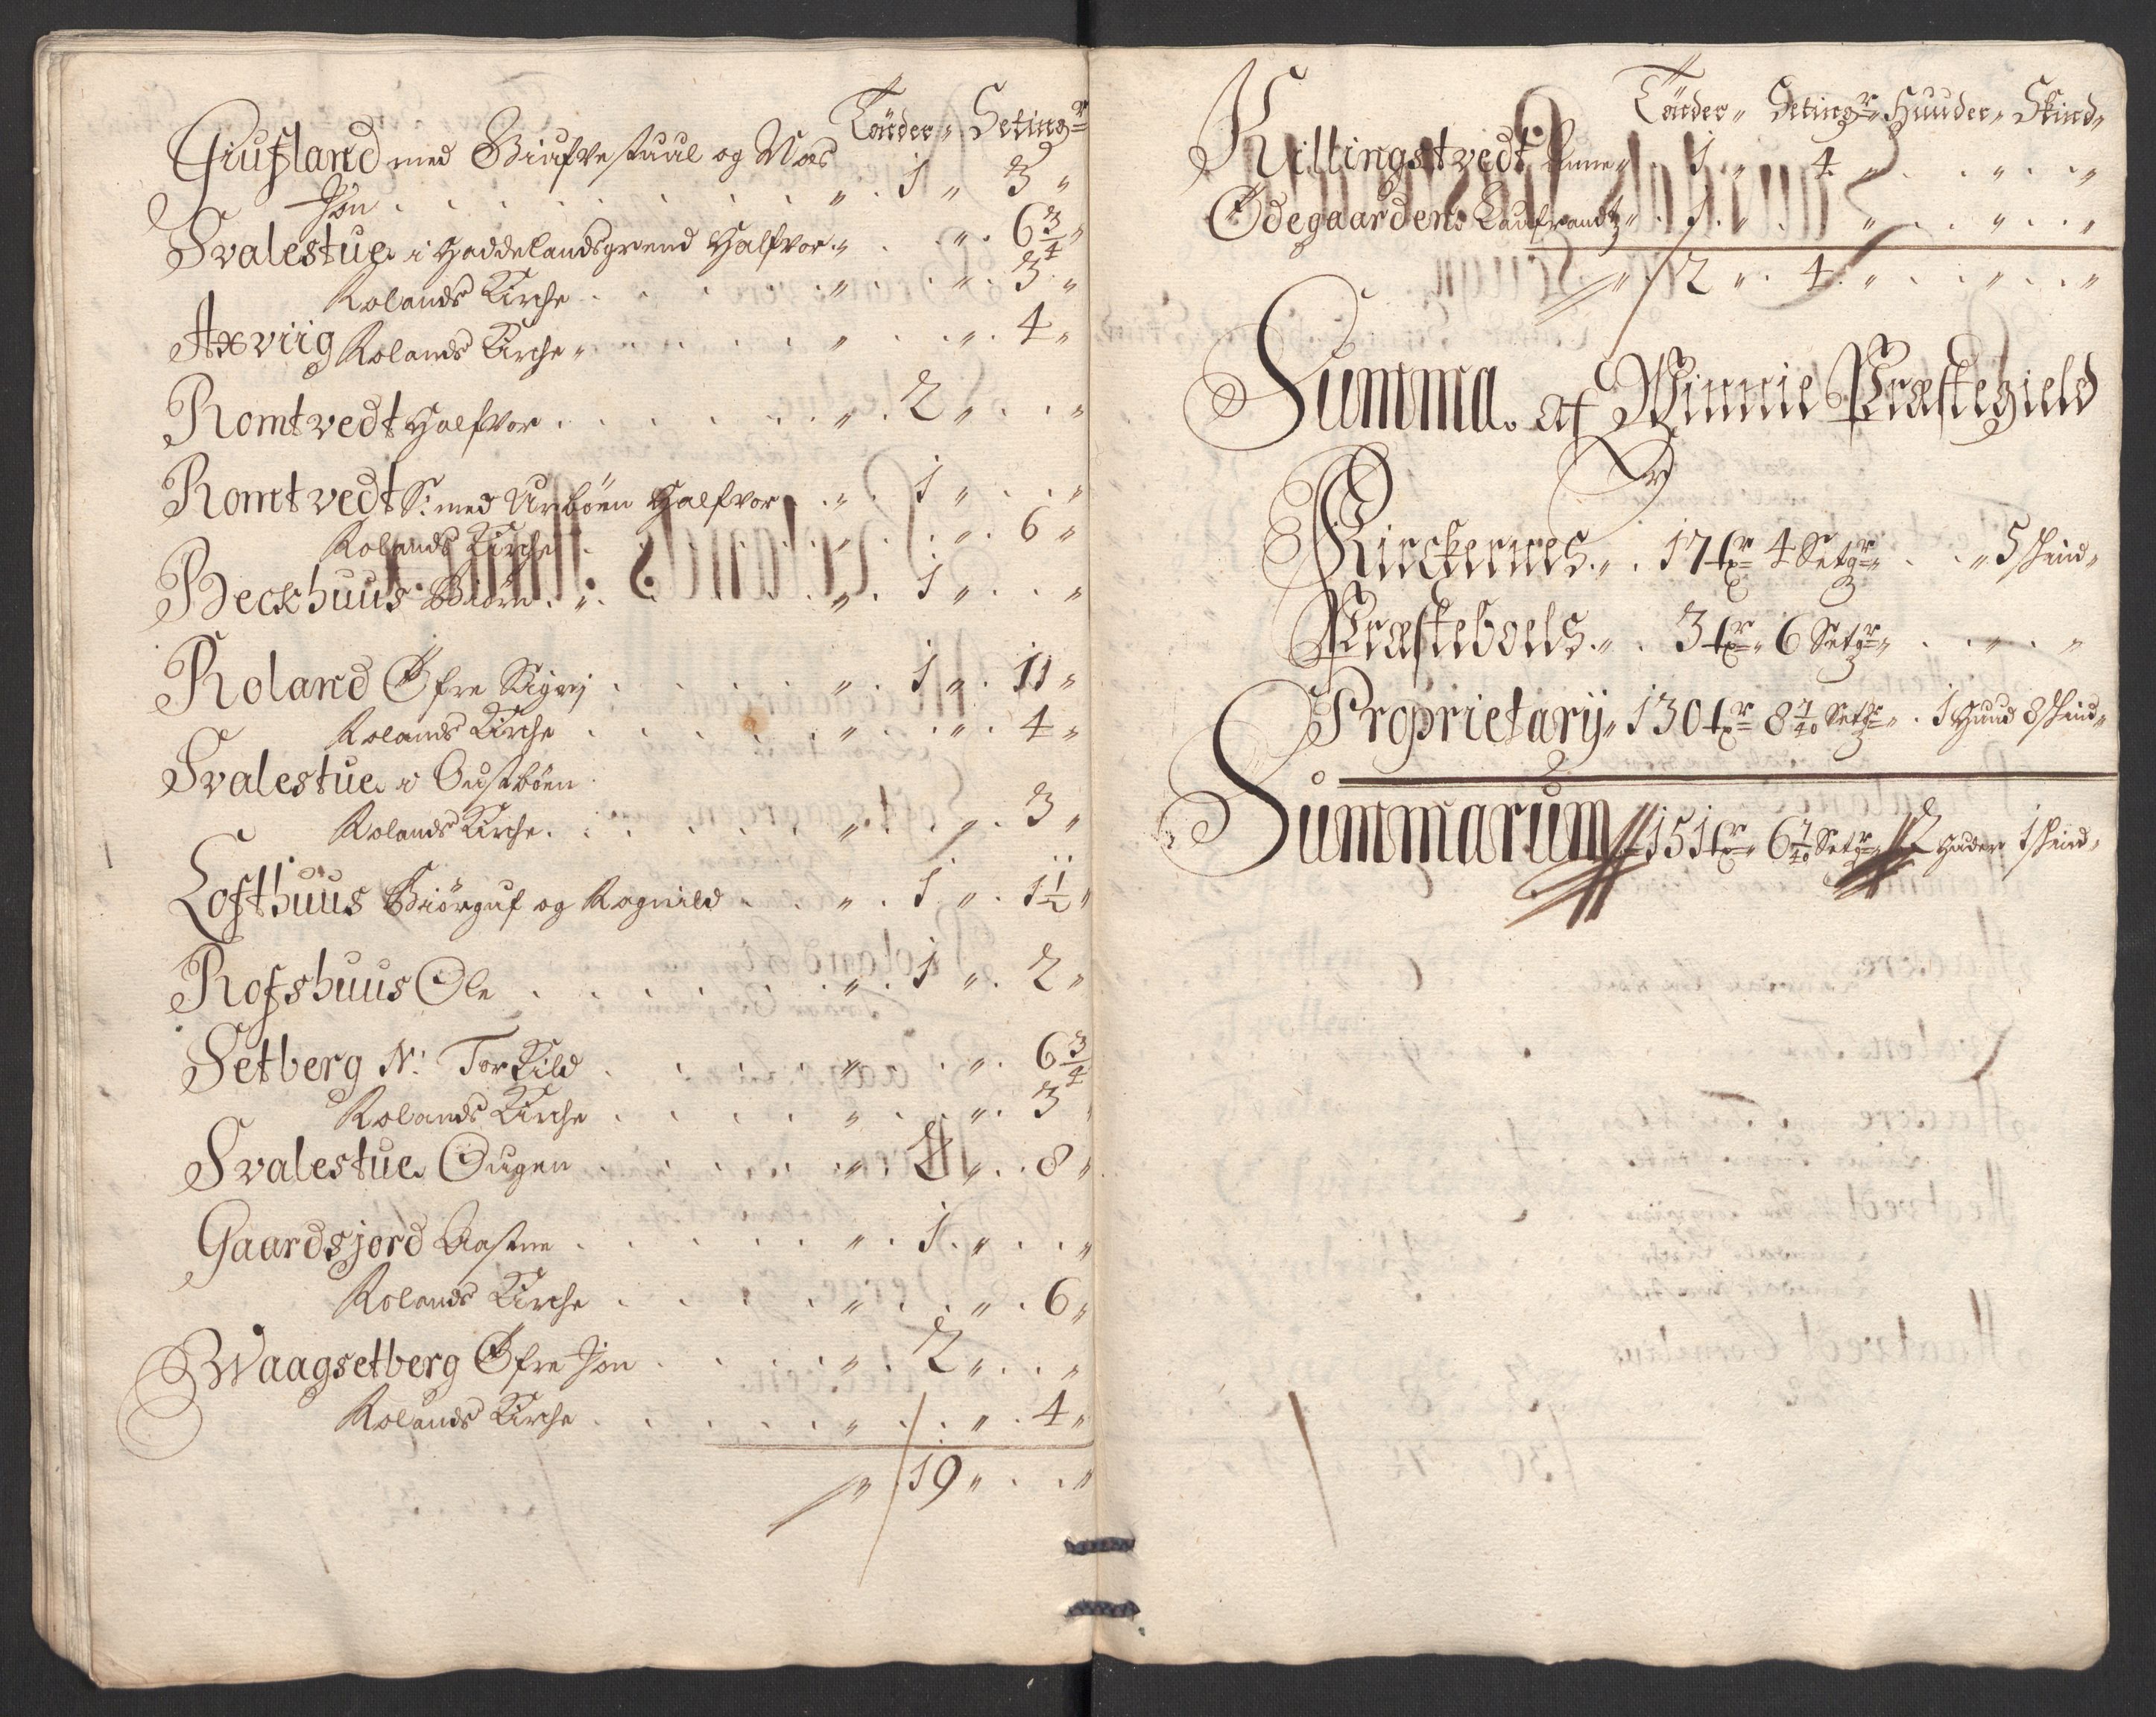 Tönder„ Seting͞r
Giufsland med Giufvestuul og Næs
Jön . . . . . . . . „ . 1 „ 3 „
Svalestue i Haddelandsgrend Halfvor „ . . „ . 6 3/4 „
Rolands Kirche . . . . „ . . „ . 3 „
Axviig Rolands Kirche „ . . . . „ . . „ . 4 „
Romtvedt Halfvor . . . . . . „ . 2 „ . . „
Romtvedt S: med Urböen Halfvor . „ . 1 „ . . „
Rolands Kirche . . . . „ . . „ . 6 „
Beckhuus Biörn . „ . . . . „ . 1 „ . . „
Roland Øfre Sigri . . . . . „ . 1 „ . 11 „
Rolands Kirche . . . . . „ . . „ . 4 „
Svalestue i Oustböen
Rolands Kirche . . . . . „ . . „ . 3 „
Lofthuus Biörguf og Ragnild . . „ . 1 „ . 1 1/2 „
Rofshuus Ole . . . . . . „ . 1 „ . 2 „
Setberg N: Torkild . . . . „ . . „ . 6 3/4
Rolands Kirche . . . . „ . . „ . 3 „
Svalestue Ougen . . . . . „ . „ . . 8 „
Gaardsjord Aasne . . . . . „ . 1 . „ . . „
Rolands Kirche . . . . „ . . „ . 6 „
Waagsetberg Øfre Jon . . . . „ . 2 „ . . „
Rolands Kirche . . . . . „ . . „ . 4 „
„ 19 „ . . „
Tönder„ Seting͞r„ Huuder„ Skind„
Killingstvedt Anne „ 1 „ 4 „ . . „ . . „
Ødegaarden . 1 . „ . „ . . „ . . „
„ 2 „ . 4 . „ . . „ . . „
Summa. af Winnie Præstegield
Kirckernes „ . 17 t͞r 4 Set͞r „ . . „ 5 skind „
Præsteboels „ . 3 t͞r „ 6 Set͞r „ . . „ . „
Proprietarij „ 130 t͞r 8 7/40 Set͞r „ . 1 huud 8 skind „
Summarum „ 151 t͞r „ 6 7/40 Set͞r „ 2 huder 1 skind „